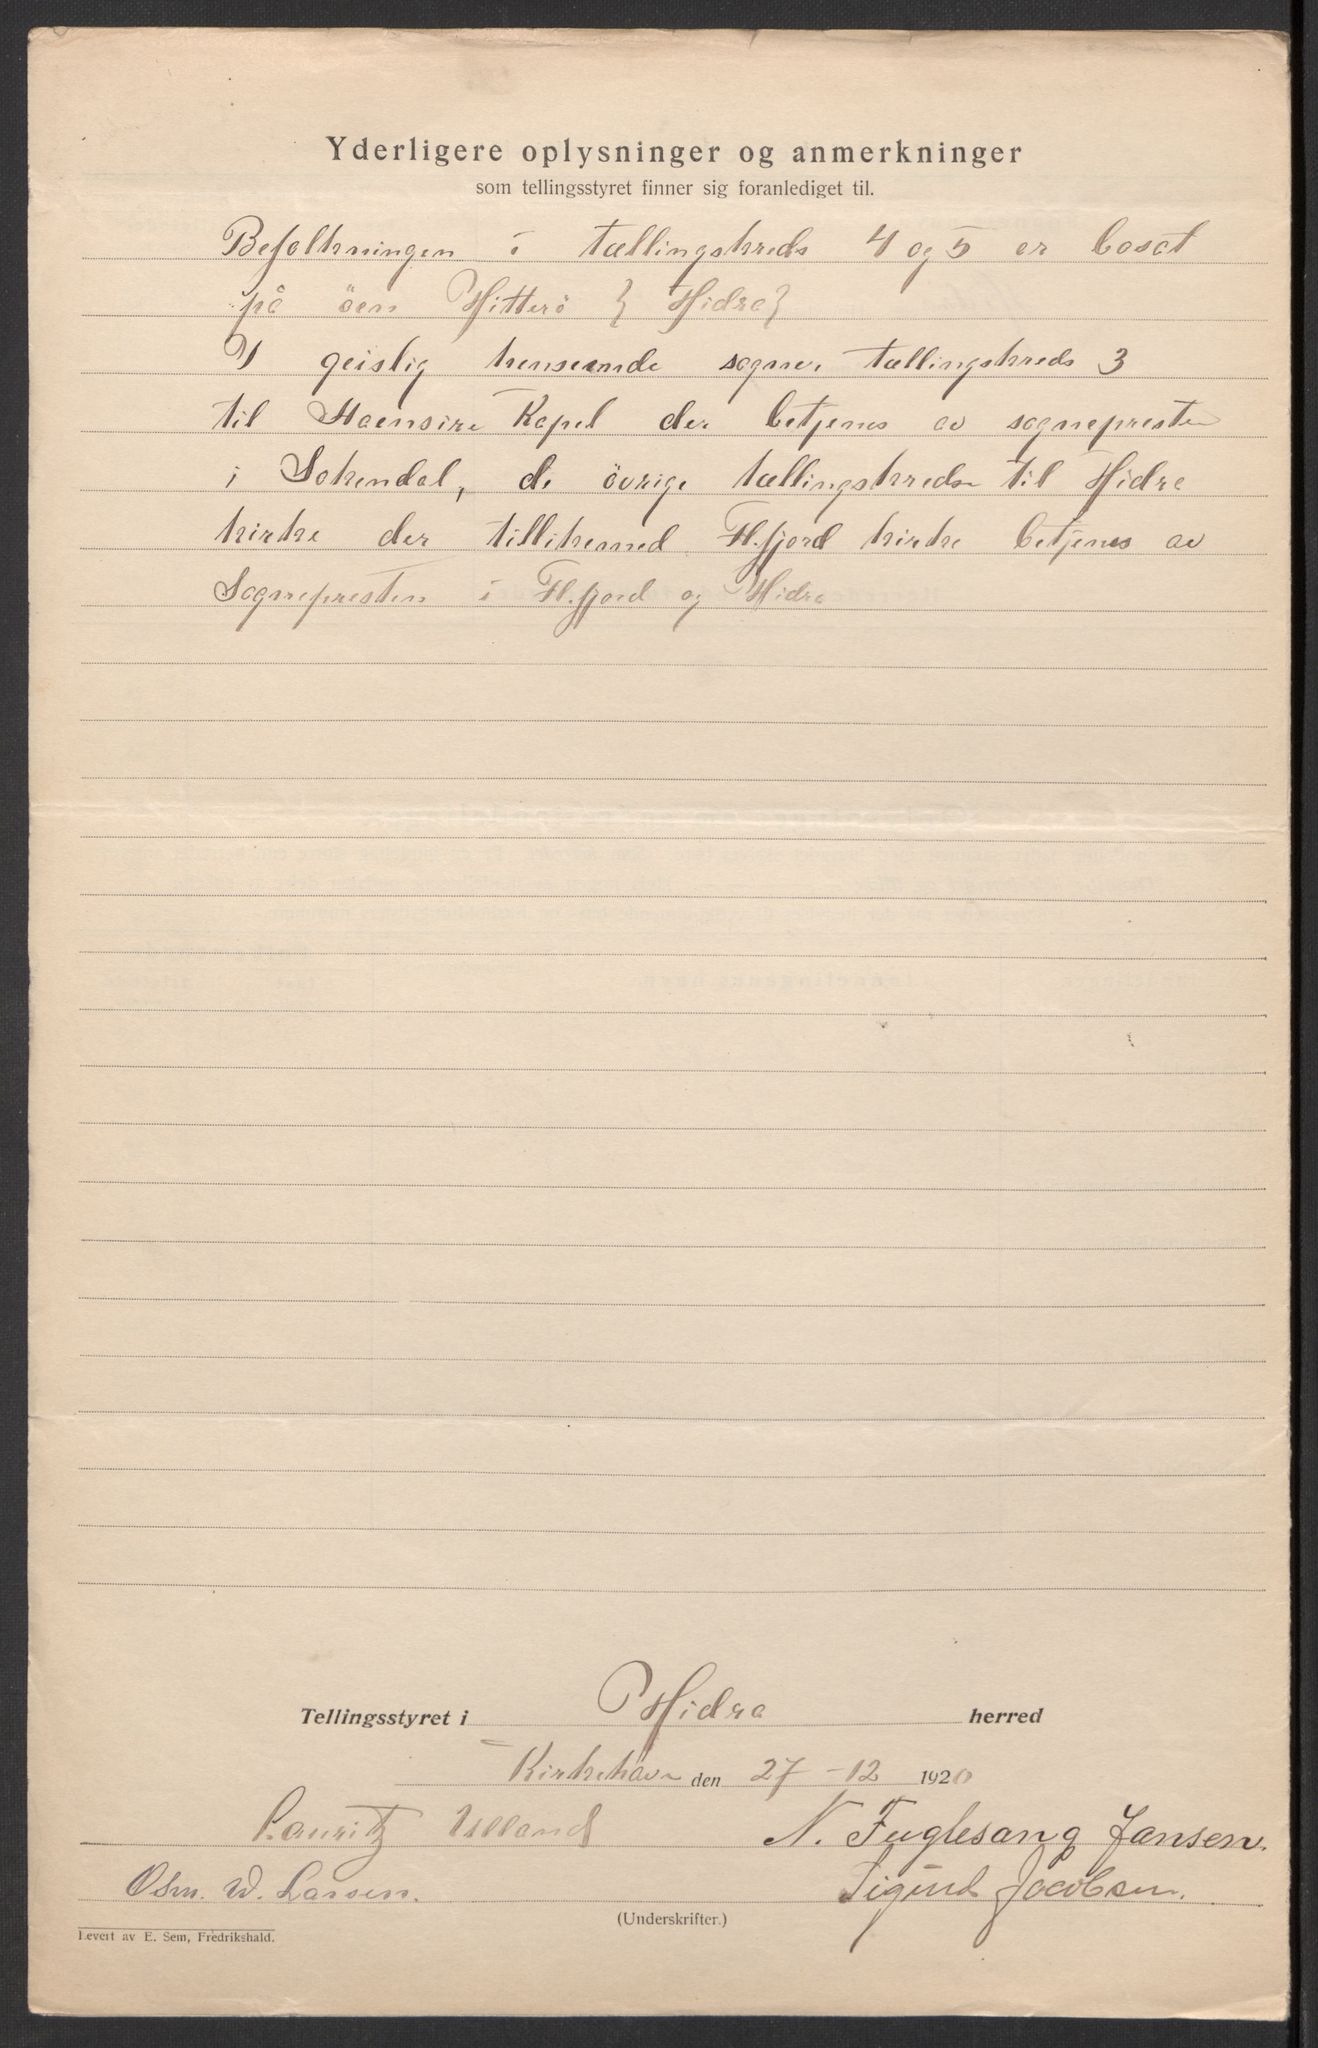 Yderligere oplysninger og anmerkninger
som tellingsstyret finner sig foranlediget til.
Befolkningen i tællingskreds 4 og 5 er bosat
på öen Hitterö { Hidra }
I geislig henseende sogner tællingskreds 3
til Aaensire Kapel der betjenes av sognepresten
i Sokendal, de övrige tællingskredse til Hidra
kirke der tillikemed Fl.fjord kirke betjenes av
Sognepresten i Fl.fjord og Hidra
Tellingsstyret i Hidra herred
Kirkehavn den 27-12 1920
Lauritz Ulland N. Fuglesang Jansen.
Osm. W. Larsen. Sigurd Jacobsen.
(Underskrifter.)
Levert av E. Sem, Fredrikshald.